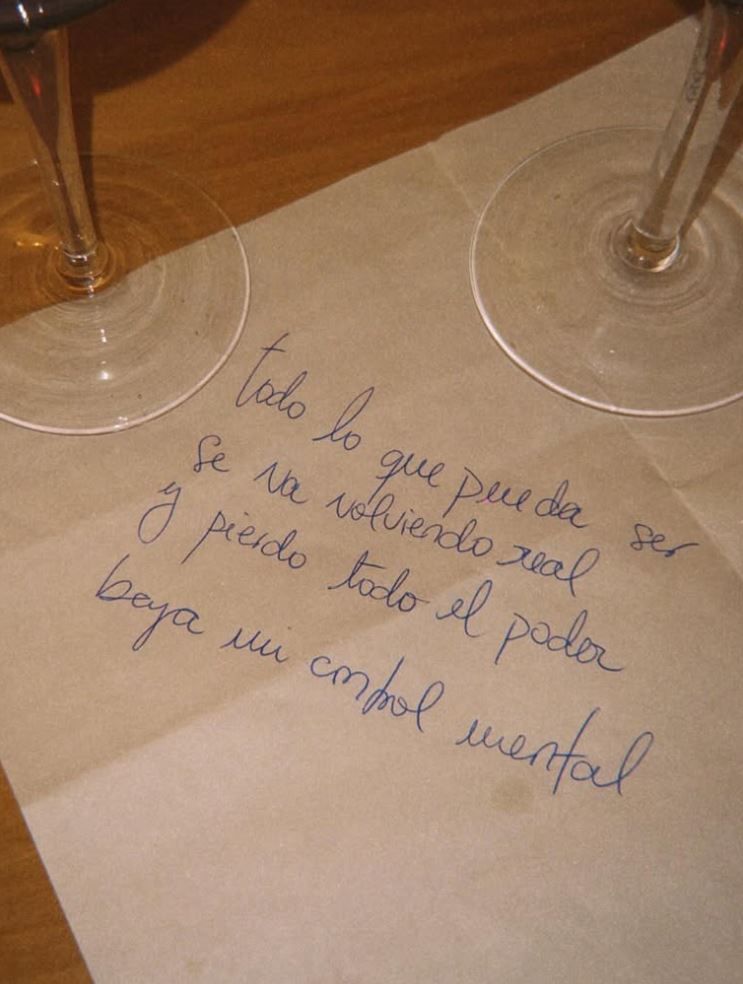 todo lo que pueda ser
se va volviendo real
y pierdo todo el poder
baja mi control mental